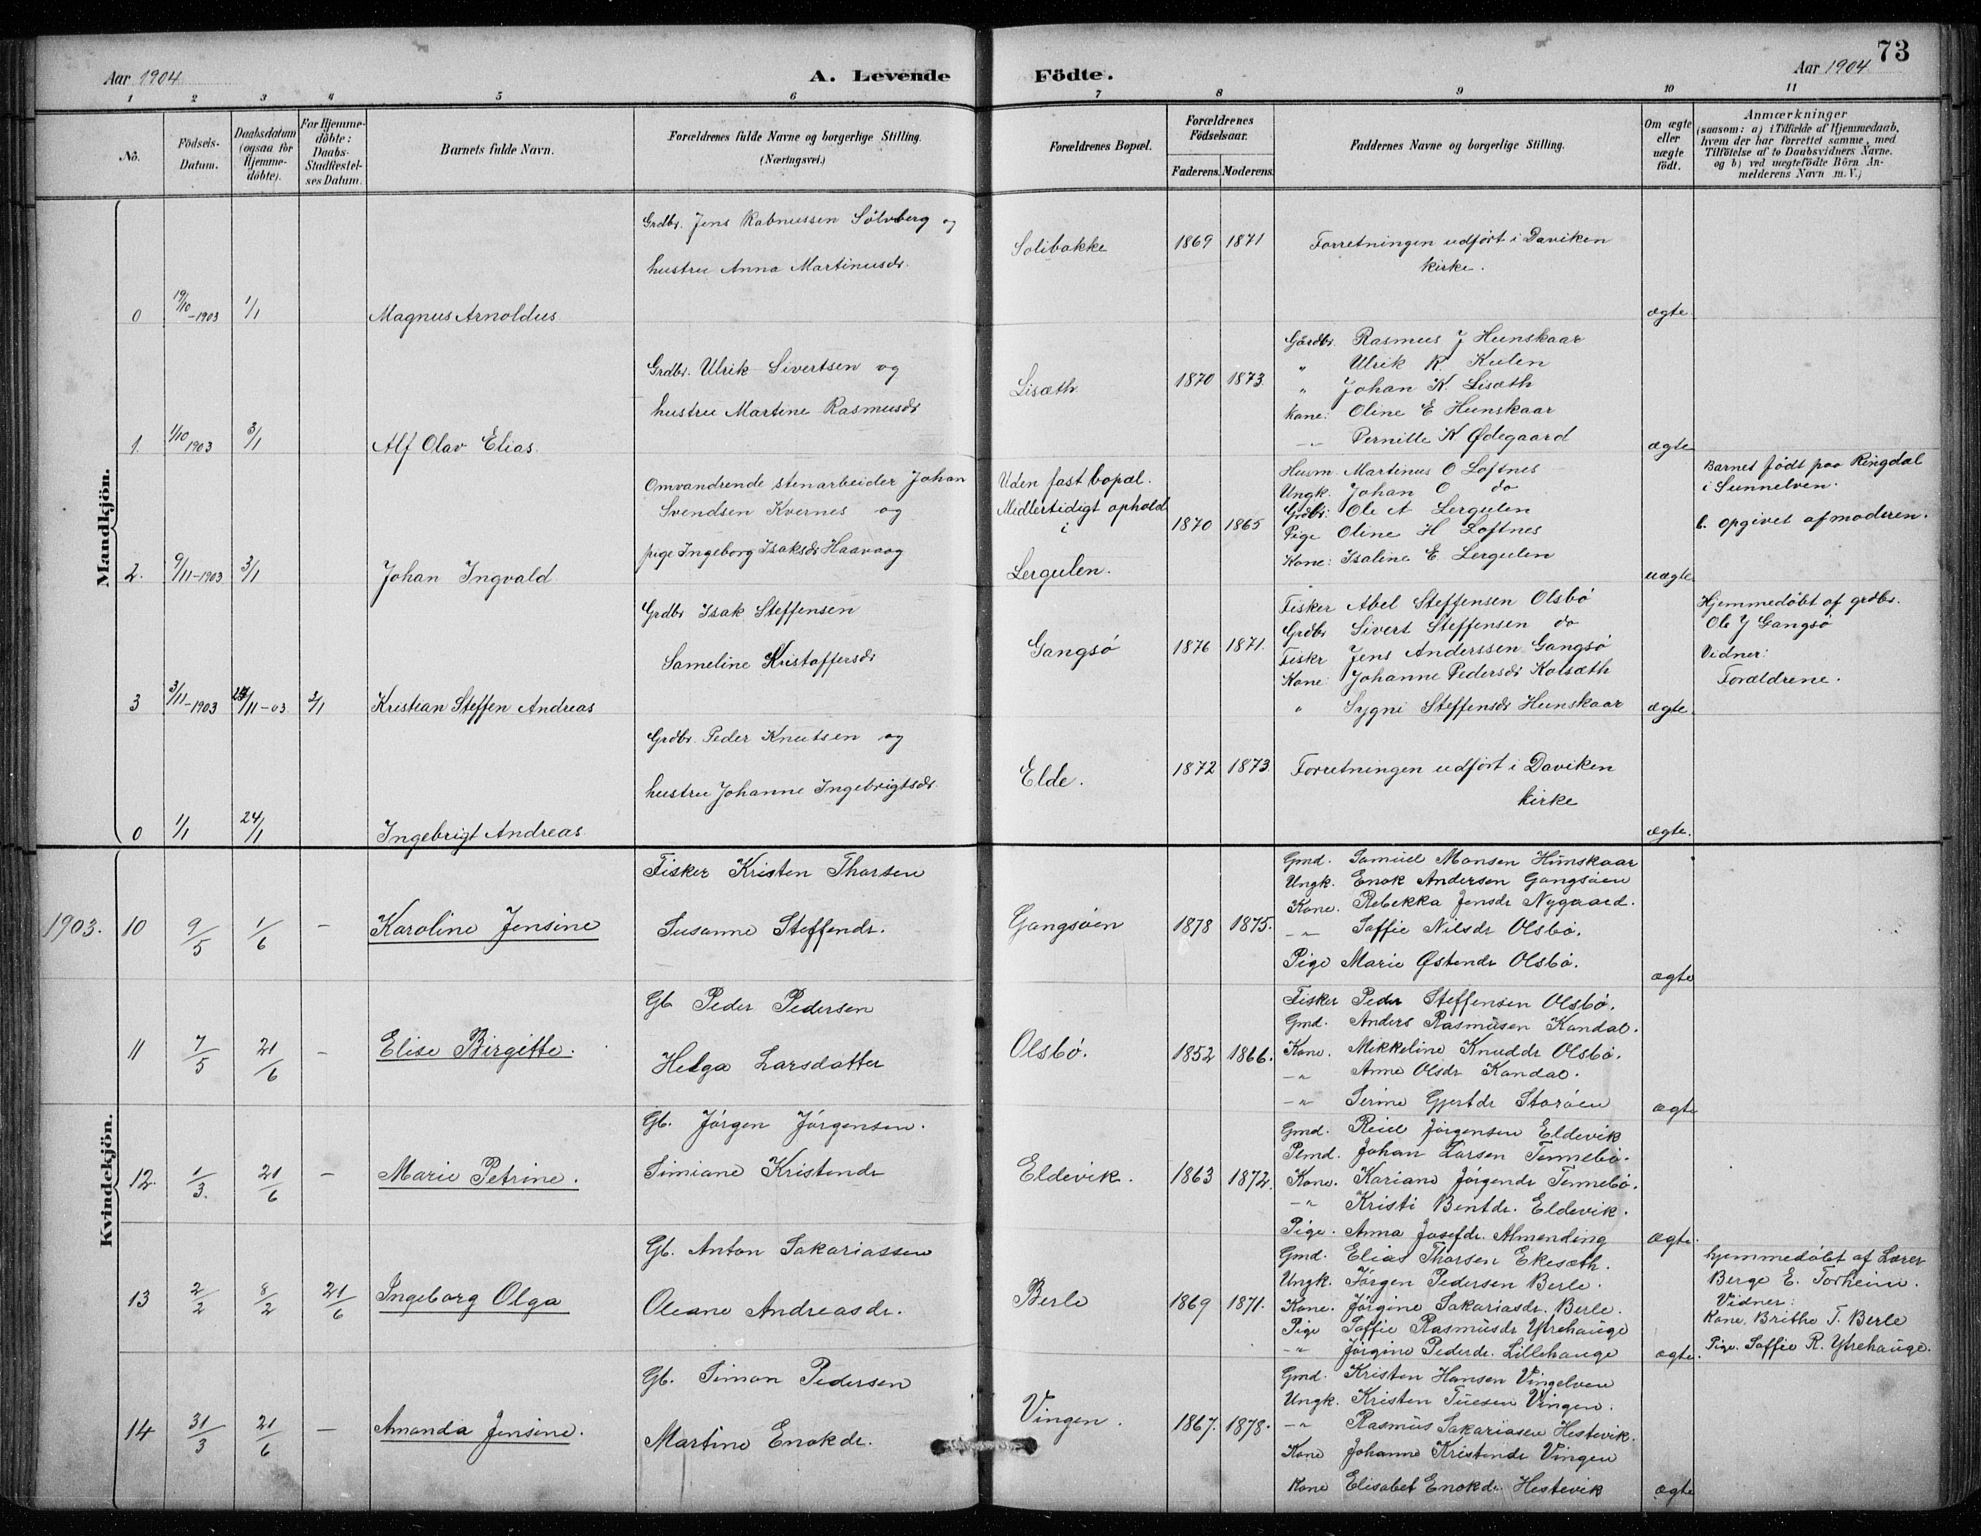 73
Aar 1904
A. Levende
Födte.
Aar 1904
1
2
3
4
5
6
7
8
9
10
11
No.
Födsels-
Datum.
Daabsdatum
(ogsaa for
Hjemme-
döbte).
For Hjemme-
döbte:
Daabs-
Stadfæstel-
ses Datum.
Barnets fulde Navn.
Forældrenes fulde Navne og borgerlige Stilling.
(Næringsvei.)
Forældrenes Bopæl.
Forældrenes
Födselsaar.
Faderens.
Moderens.
Faddernes Navne og borgerlige Stilling.
Om ægte
eller
uægte
födt.
Anmærkninger
(saasom: a) i Tilfælde af Hjemmedaab,
hvem der har forrettet samme, med
Tilföielse af to Daabsvidners Navne,
og b) ved uægtefödte Börn An-
melderens Navn m.V.)
Mandkjön.
0
19/10-1903
1/1
Magnus Arnoldus
Grdbr. Jens Rabnussen Sölvberg og
hustru Anna Martinusdr.
Solibakke
1869
1871
Forretningen udført i Daviken
kirke.
ægte.
1.
1/10 1903
3/1
Alf Olav Elias.
Grdbr. Ulrik Sivertsen og
hustru Martine Rasmusdr
Lisæth
1870
1873.
Gårdbr. Rasmus J Hunskaar
" Ulrik R. Kulen
" Johan K. Lisæth
Kone: Oline E Hunskaar
-"- Pernille K Ødegaard
ægte
2.
9/11-1903
3/1
Johan Ingvald
Omvandrende stenarbeider Johan
Svendsen Kvernes og
pige Ingeborg Isaksdr Haavaag
Uden fast bopæl.
Midlertidigt ophold
i
Lergulen.
1870
1865
Husm. Martinus O Loftnes
Ungk. Johan O do
Grdbr: Ole A Lergulen
Pige Oline H Loftnes
Kone: Isaline E. Lergulen
uægte
Barnet født paa Ringdal
i Sunnelven.
b. opgivet af moderen.
3
3/11-1903
27/11-03
3/1
Kristian Steffen Andreas
Grdbr Isak Steffensen
Sameline Kristoffersdr
Gangsø
1876
1871.
Fisker Abel Steffensen Olsbö
Grdbr Sivert Steffensen do
Fiskr Jens Anderssen Gangsø
Kone: Johanne Pedersdr Kolsæth
" Sygni Steffensdr Hunskaar
ægte.
Hjemmedøbt af grdbr.
Ole J Gangsø
Vidner:
Forældrene.
0
1/1
24/1
Ingebrigt Andreas
Grdbr. Peder Knutsen og
hustru Johanne Ingebrigtsdr.
Elde.
1872
1873.
Forretningen udført i Daviken
kirke
ægte.
1903.
Kvindekjön.
10
9/5
1/6
-
Karoline Jensine
Fisker Kristen Thorsen
Susanne Steffendr.
Gangsøen
1878
1875.
Gmd. Samuel Monsen Hunskaar
Ungk. Enok Andersen Gangsøen
Kone. Rebekka Jensdr Nygaard.
-"- Saffie Nilsdr Olsbö.
Pige Marie Østendr Olsbö.
ægte
11
7/5
21/6
-
Elise Birgitte.
Gb. Peder Pedersen
Helga Larsdatter
Olsbö.
1852
1866.
Fisker Peder Steffensen Olsbö.
Gmd. Anders Rasmusen Kandal.
Kone. Mikkeline Knuddr Olsbö.
-"- Anne Olsdr Kandal.
-"- Serine Gjertdr Storöen
ægte
12.
1/3.
21/6
-
Marie Petrine.
Gb. Jörgen Jörgensen.
Simiane Kristendr
Eldevik.
1863
1872.
Gmd. Reiel Jörgensen Eldevik
Pemd. Johan Larsen Tennebö.
Kone. Kariane Jörgendr Tennebö.
-"- Kristi Bentdr. Eldevik.
Pige. Anna Josefdr. Almending
ægte.
13
2/2
8/2
21/6
Ingeborg Olga
Gb. Anton Sakariassen
Oleane Andreasdr.
Berle
1869
1871.
Gmd. Elias Thorsen Ekesæth.
Ungk. Jörgen Pedersen Berle.
Kone. Jörgine Sakariasdr. Berle.
Pige Saffie Rasmusdr Ytrehauge
-"- Jörgine Pederdr. Lillehauge
ægte.
hjemmedøbt af Lærer
Berge E. Torheim.
Vidner:
Kone. Brithe T. Berle
Pige. Saffie R. Ytrehauge.
14
31/3
21/6
-
Amanda Jensine.
Gb. Simon Pedersen
Martine Enokdr.
Vingen.
1867.
1878.
Gmd. Kristen Hansen Vingelven
Ungk. Kristen Tuesen Vingen.
-"- Rasmus Sakariasen Hestevik.
Kone Johanne Kristendr Vingen
Kone Elisabet Enokdr Hestevik
ægte